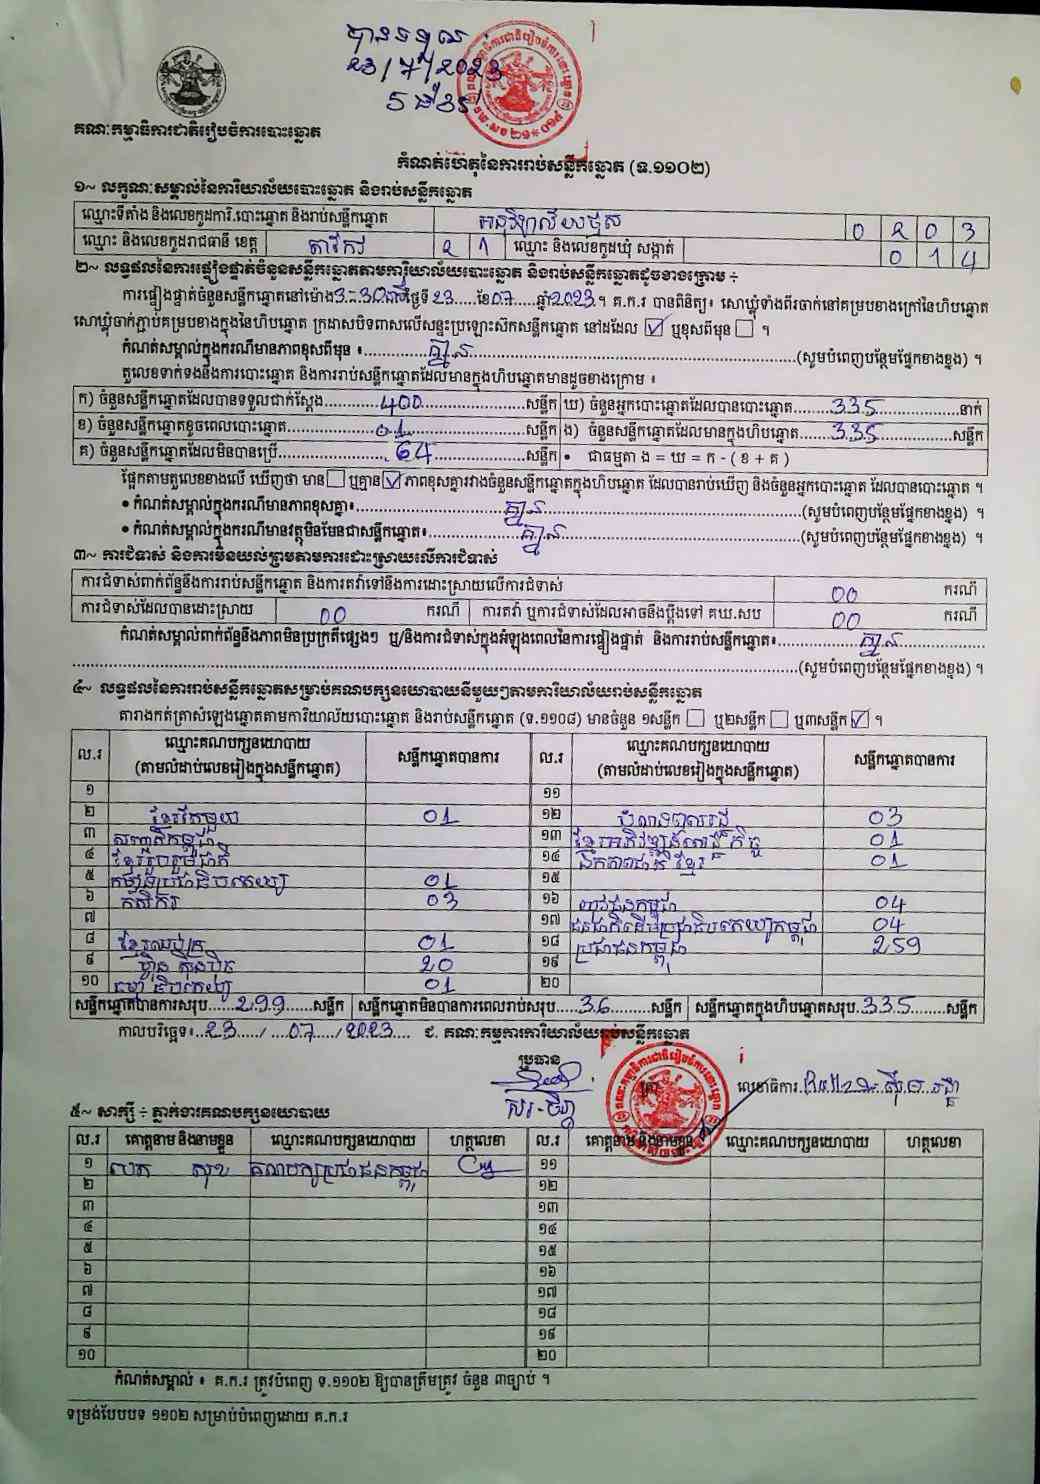 បានទទួល
23/7/2023
គណៈកម្មាធិការជាតិរៀបចំការបោះឆ្នោត
កំណត់ហេតុនៃការរាប់សន្លឹកឆ្នោត (ទ.១១០២)
១~ លក្ខណៈសម្គាល់នៃការិយាល័យបោះឆ្នោត និងរាប់សន្លឹកឆ្នោត
ឈ្មោះទីតាំង និងលេខកូដការិ.បោះឆ្នោត និងរាប់សន្លឹកឆ្នោត 0 2 0 3
ឈ្មោះ និងលេខកូដរាជធានី ខេត្ត តាកែវ 2 1 ឈ្មោះ និងលេខកូដឃុំ សង្កាត់ 0 1 4
២~ លទ្ធផលនៃការផ្ទៀងផ្ទាត់ចំនួនសន្លឹកឆ្នោតតាមការិយាល័យបោះឆ្នោត និងរាប់សន្លឹកឆ្នោតដូចខាងក្រោម ÷
ការផ្ទៀងផ្ទាត់ចំនួនសន្លឹកឆ្នោតនៅម៉ោង 3:30 ថ្ងៃទី 23 ខែ 07 ឆ្នាំ 2023 ។ គ.ក.រ បានពិនិត្យ៖ សោឃ្លុំទាំងពីរចាក់នៅគម្របខាងក្រៅនៃហិបឆ្នោត
សោឃ្លុំចាក់ភ្ជាប់គម្របខាងក្នុងនៃហិបឆ្នោត ក្រដាសបិទពាសលើសន្ទះប្រឡោះស៊កសន្លឹកឆ្នោត នៅដដែល ☑ ឬខុសពីមុន ☐ ។
កំណត់សម្គាល់ក្នុងករណីមានភាពខុសពីមុន ៖ គ្មាន (សូមបំពេញបន្ថែមផ្នែកខាងខ្នង) ។
តួលេខទាក់ទងនឹងការបោះឆ្នោត និងការរាប់សន្លឹកឆ្នោតដែលមានក្នុងហិបឆ្នោតមានដូចខាងក្រោម ៖
ក) ចំនួនសន្លឹកឆ្នោតដែលបានទទួលជាក់ស្តែង 400 សន្លឹក ឃ) ចំនួនអ្នកបោះឆ្នោតដែលបានបោះឆ្នោត 335 នាក់
ខ) ចំនួនសន្លឹកឆ្នោតខូចពេលបោះឆ្នោត 01 សន្លឹក ង) ចំនួនសន្លឹកឆ្នោតដែលមានក្នុងហិបឆ្នោត 335 សន្លឹក
គ) ចំនួនសន្លឹកឆ្នោតដែលមិនបានប្រើ 64 សន្លឹក • ជាធម្មតា ង = ឃ = ក - ( ខ + គ )
ផ្អែកតាមតួលេខខាងលើ ឃើញថា មាន ☐ ឬគ្មាន ☑ ភាពខុសគ្នារវាងចំនួនសន្លឹកឆ្នោតក្នុងហិបឆ្នោត ដែលបានរាប់ឃើញ និងចំនួនអ្នកបោះឆ្នោត ដែលបានបោះឆ្នោត ។
• កំណត់សម្គាល់ក្នុងករណីមានភាពខុសគ្នា៖ គ្មាន (សូមបំពេញបន្ថែមផ្នែកខាងខ្នង) ។
• កំណត់សម្គាល់ក្នុងករណីមានវត្ថុមិនមែនជាសន្លឹកឆ្នោត៖ គ្មាន (សូមបំពេញបន្ថែមផ្នែកខាងខ្នង) ។
៣~ ការជំទាស់ និងការមិនយល់ព្រមតាមការដោះស្រាយលើការជំទាស់
ការជំទាស់ពាក់ព័ន្ធនឹងការរាប់សន្លឹកឆ្នោត និងការតវ៉ាទៅនឹងការដោះស្រាយលើការជំទាស់ 00 ករណី
ការជំទាស់ដែលបានដោះស្រាយ 00 ករណី ការតវ៉ា ឬការជំទាស់ដែលអាចនឹងប្តឹងទៅ គឃ.សប 00 ករណី
កំណត់សម្គាល់ពាក់ព័ន្ធនឹងភាពមិនប្រក្រតីផ្សេងៗ ឬ/និងការជំទាស់ក្នុងអំឡុងពេលនៃការផ្ទៀងផ្ទាត់ និងការរាប់សន្លឹកឆ្នោត៖ គ្មាន
(សូមបំពេញបន្ថែមផ្នែកខាងខ្នង) ។
៤~ លទ្ធផលនៃការរាប់សន្លឹកឆ្នោតសម្រាប់គណបក្សនយោបាយនីមួយៗតាមការិយាល័យរាប់សន្លឹកឆ្នោត
តារាងកត់ត្រាសំឡេងឆ្នោតតាមការិយាល័យបោះឆ្នោត និងរាប់សន្លឹកឆ្នោត (ទ.១១០៨) មានចំនួន ១សន្លឹក ☐ ឬ២សន្លឹក ☐ ឬ៣សន្លឹក ☑ ។
ល.រ ឈ្មោះគណបក្សនយោបាយ (តាមលំដាប់លេខរៀងក្នុងសន្លឹកឆ្នោត) សន្លឹកឆ្នោតបានការ ល.រ ឈ្មោះគណបក្សនយោបាយ (តាមលំដាប់លេខរៀងក្នុងសន្លឹកឆ្នោត) សន្លឹកឆ្នោតបានការ
១ ១១
២ ខ្មែរតែមួយ 01 ១២ 03
៣ សញ្ជាតិកម្ពុជា ១៣ ខ្មែរអភិវឌ្ឍន៍សេដ្ឋកិច្ច 01
៤ ខ្មែររួបរួមជាតិ ១៤ ឯកភាពជាតិខ្មែរ 01
៥ កម្លាំងប្រជាធិបតេយ្យ 01 ១៥
៦ កសិករ 03 ១៦ យុវជនកម្ពុជា 04
៧ ១៧ ជនជាតិដើមប្រជាធិបតេយ្យកម្ពុជា 04
៨ 01 ១៨ ប្រជាជនកម្ពុជា 259
៩ ហ៊្វុនស៊ិនប៉ិច 20 ១៩
១០ 01 ២០
សន្លឹកឆ្នោតបានការសរុប 299 សន្លឹក សន្លឹកឆ្នោតមិនបានការពេលរាប់សរុប 36 សន្លឹក សន្លឹកឆ្នោតក្នុងហិបឆ្នោតសរុប 335 សន្លឹក
កាលបរិច្ឆេទ៖ 23 / 07 / 2023 ជ. គណៈកម្មការការិយាល័យរាប់សន្លឹកឆ្នោត
ប្រធាន
លេខាធិការ
៥~ សាក្សី ÷ ភ្នាក់ងារគណបក្សនយោបាយ
ល.រ គោត្តនាម និងនាមខ្លួន ឈ្មោះគណបក្សនយោបាយ ហត្ថលេខា ល.រ គោត្តនាម និងនាមខ្លួន ឈ្មោះគណបក្សនយោបាយ ហត្ថលេខា
១ សុខ គណបក្សប្រជាជនកម្ពុជា ១១
២ ១២
៣ ១៣
៤ ១៤
៥ ១៥
៦ ១៦
៧ ១៧
៨ ១៨
៩ ១៩
១០ ២០
កំណត់សម្គាល់ ៖ គ.ក.រ ត្រូវបំពេញ ទ.១១០២ ឱ្យបានត្រឹមត្រូវ ចំនួន ៣ច្បាប់ ។
ទម្រង់បែបបទ ១១០២ សម្រាប់បំពេញដោយ គ.ក.រ